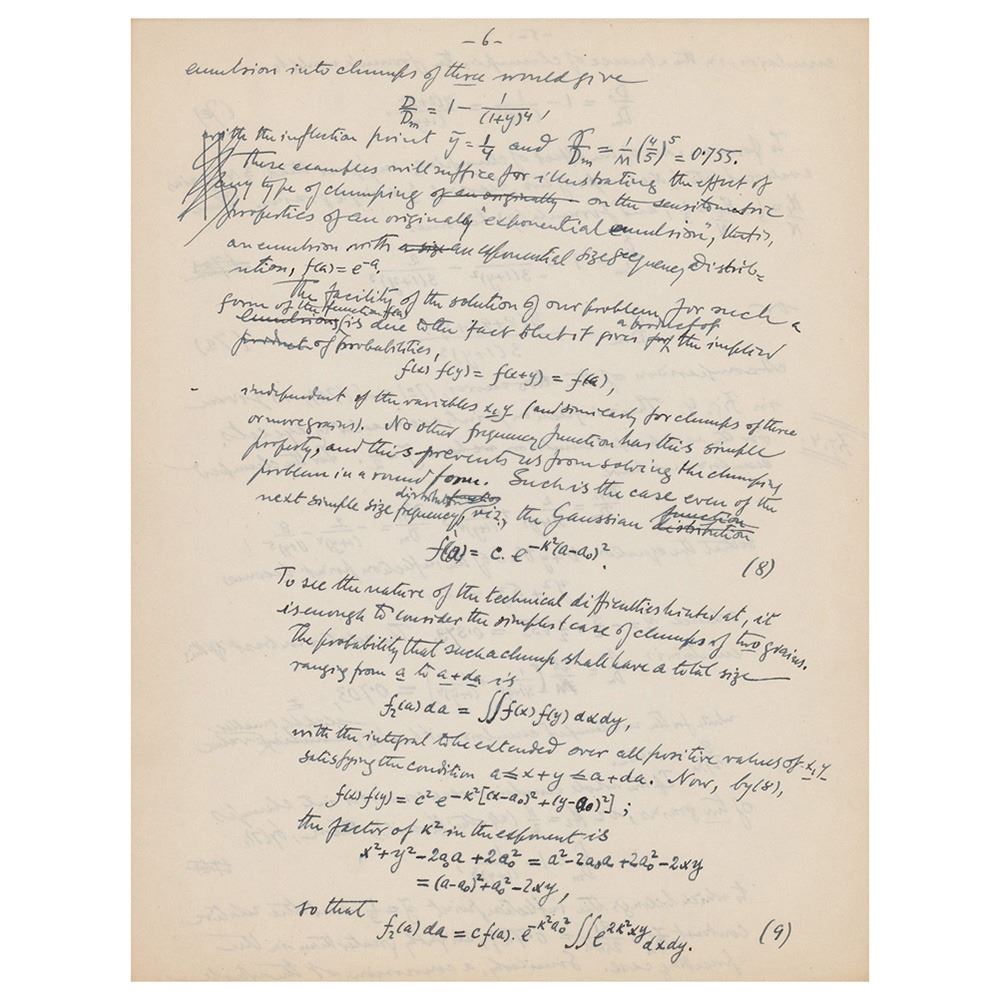 -6-
emulsion into clumps of three would give
D/Dm = 1 - 1/(1+y)^4,
with the inflection point ȳ = 1/4 and γ/Dm = 1/M (4/5)^5 = 0.755.
These examples will suffice for illustrating the effect of
any type of clumping of an originally on the sensitometric
properties of an originally "exponential emulsion", that is,
an emulsion with a size an exponential size frequency distrib-
ution, f(a) = e^-a.
The facility of the solution of our problem for such a
form of the function f(a)
emulsions is due to the fact that it gives for the implied
a product of
product of probabilities,
f(x) f(y) = f(x+y) = f(a),
independent of the variables x, y (and similarly for clumps of three
or more grains). No other frequency function has this simple
property, and this prevents us from solving the clumping
problem in a round form. Such is the case even of the
next simple size frequency distribution, viz., the Gaussian function distribution
f(a) = c. e^-k²(a-a₀)². (8)
To see the nature of the technical difficulties hinted at, it
is enough to consider the simplest case of clumps of two grains.
The probability that such a clump shall have a total size
ranging from a to a+da is
f₂(a) da = ∬f(x) f(y) dx dy,
with the integral to be extended over all positive values of x, y
satisfying the condition a ≤ x + y ≤ a + da. Now, by (8),
f(x) f(y) = c² e^-k²[(x-a₀)² + (y-a₀)²];
the factor of k² in the exponent is
x² + y² - 2a₀a + 2a₀² = a² - 2a₀a + 2a₀² - 2xy
= (a-a₀)² + a₀² - 2xy,
so that
f₂(a) da = c f(a). e^-k²a₀² ∬e^2k²xy dx dy. (9)